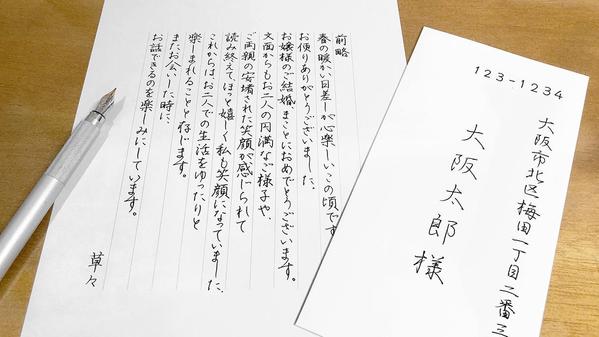 前略
春の暖かい日差しが心楽しいこの頃です
お便りありがとうございました、
お嬢様のご結婚、まことにおめでとうございます。
文面からもお二人の円満なご様子や、
ご両親の安堵された笑顔が感じられて
読み終えて、ほっと嬉しく私も笑顔になっていました、
これからは、お二人での生活をゆったりと
楽しまれることと存じます。
またお会いした時に、
お話できるのを楽しみにしています。
草々
123-1234
大阪市北区梅田一丁目二番三
大阪太郎様